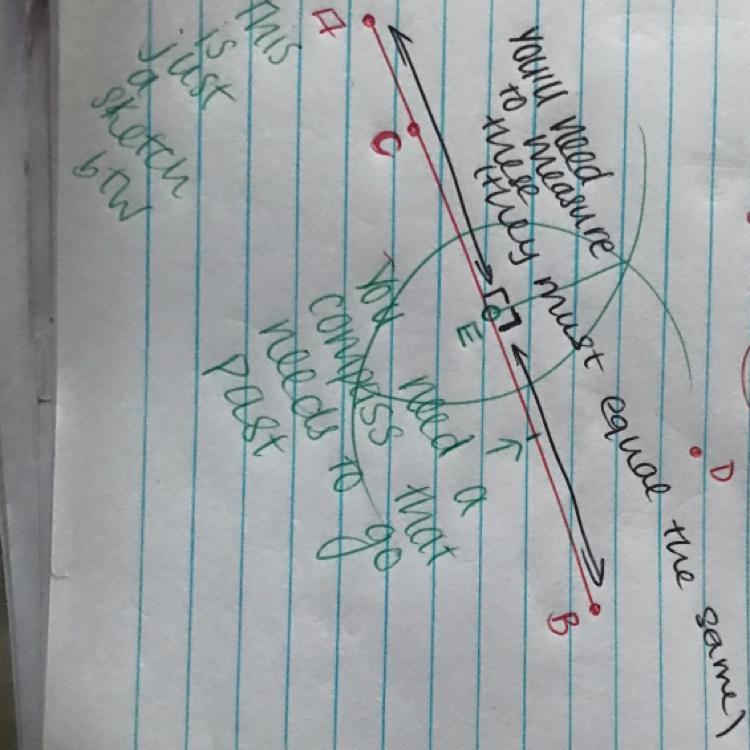 this
is
just
a
sketch
btw
A
C
E
B
D
you'll need
to measure
these
(they must equal the same)
You need a
compass that
needs to go
past